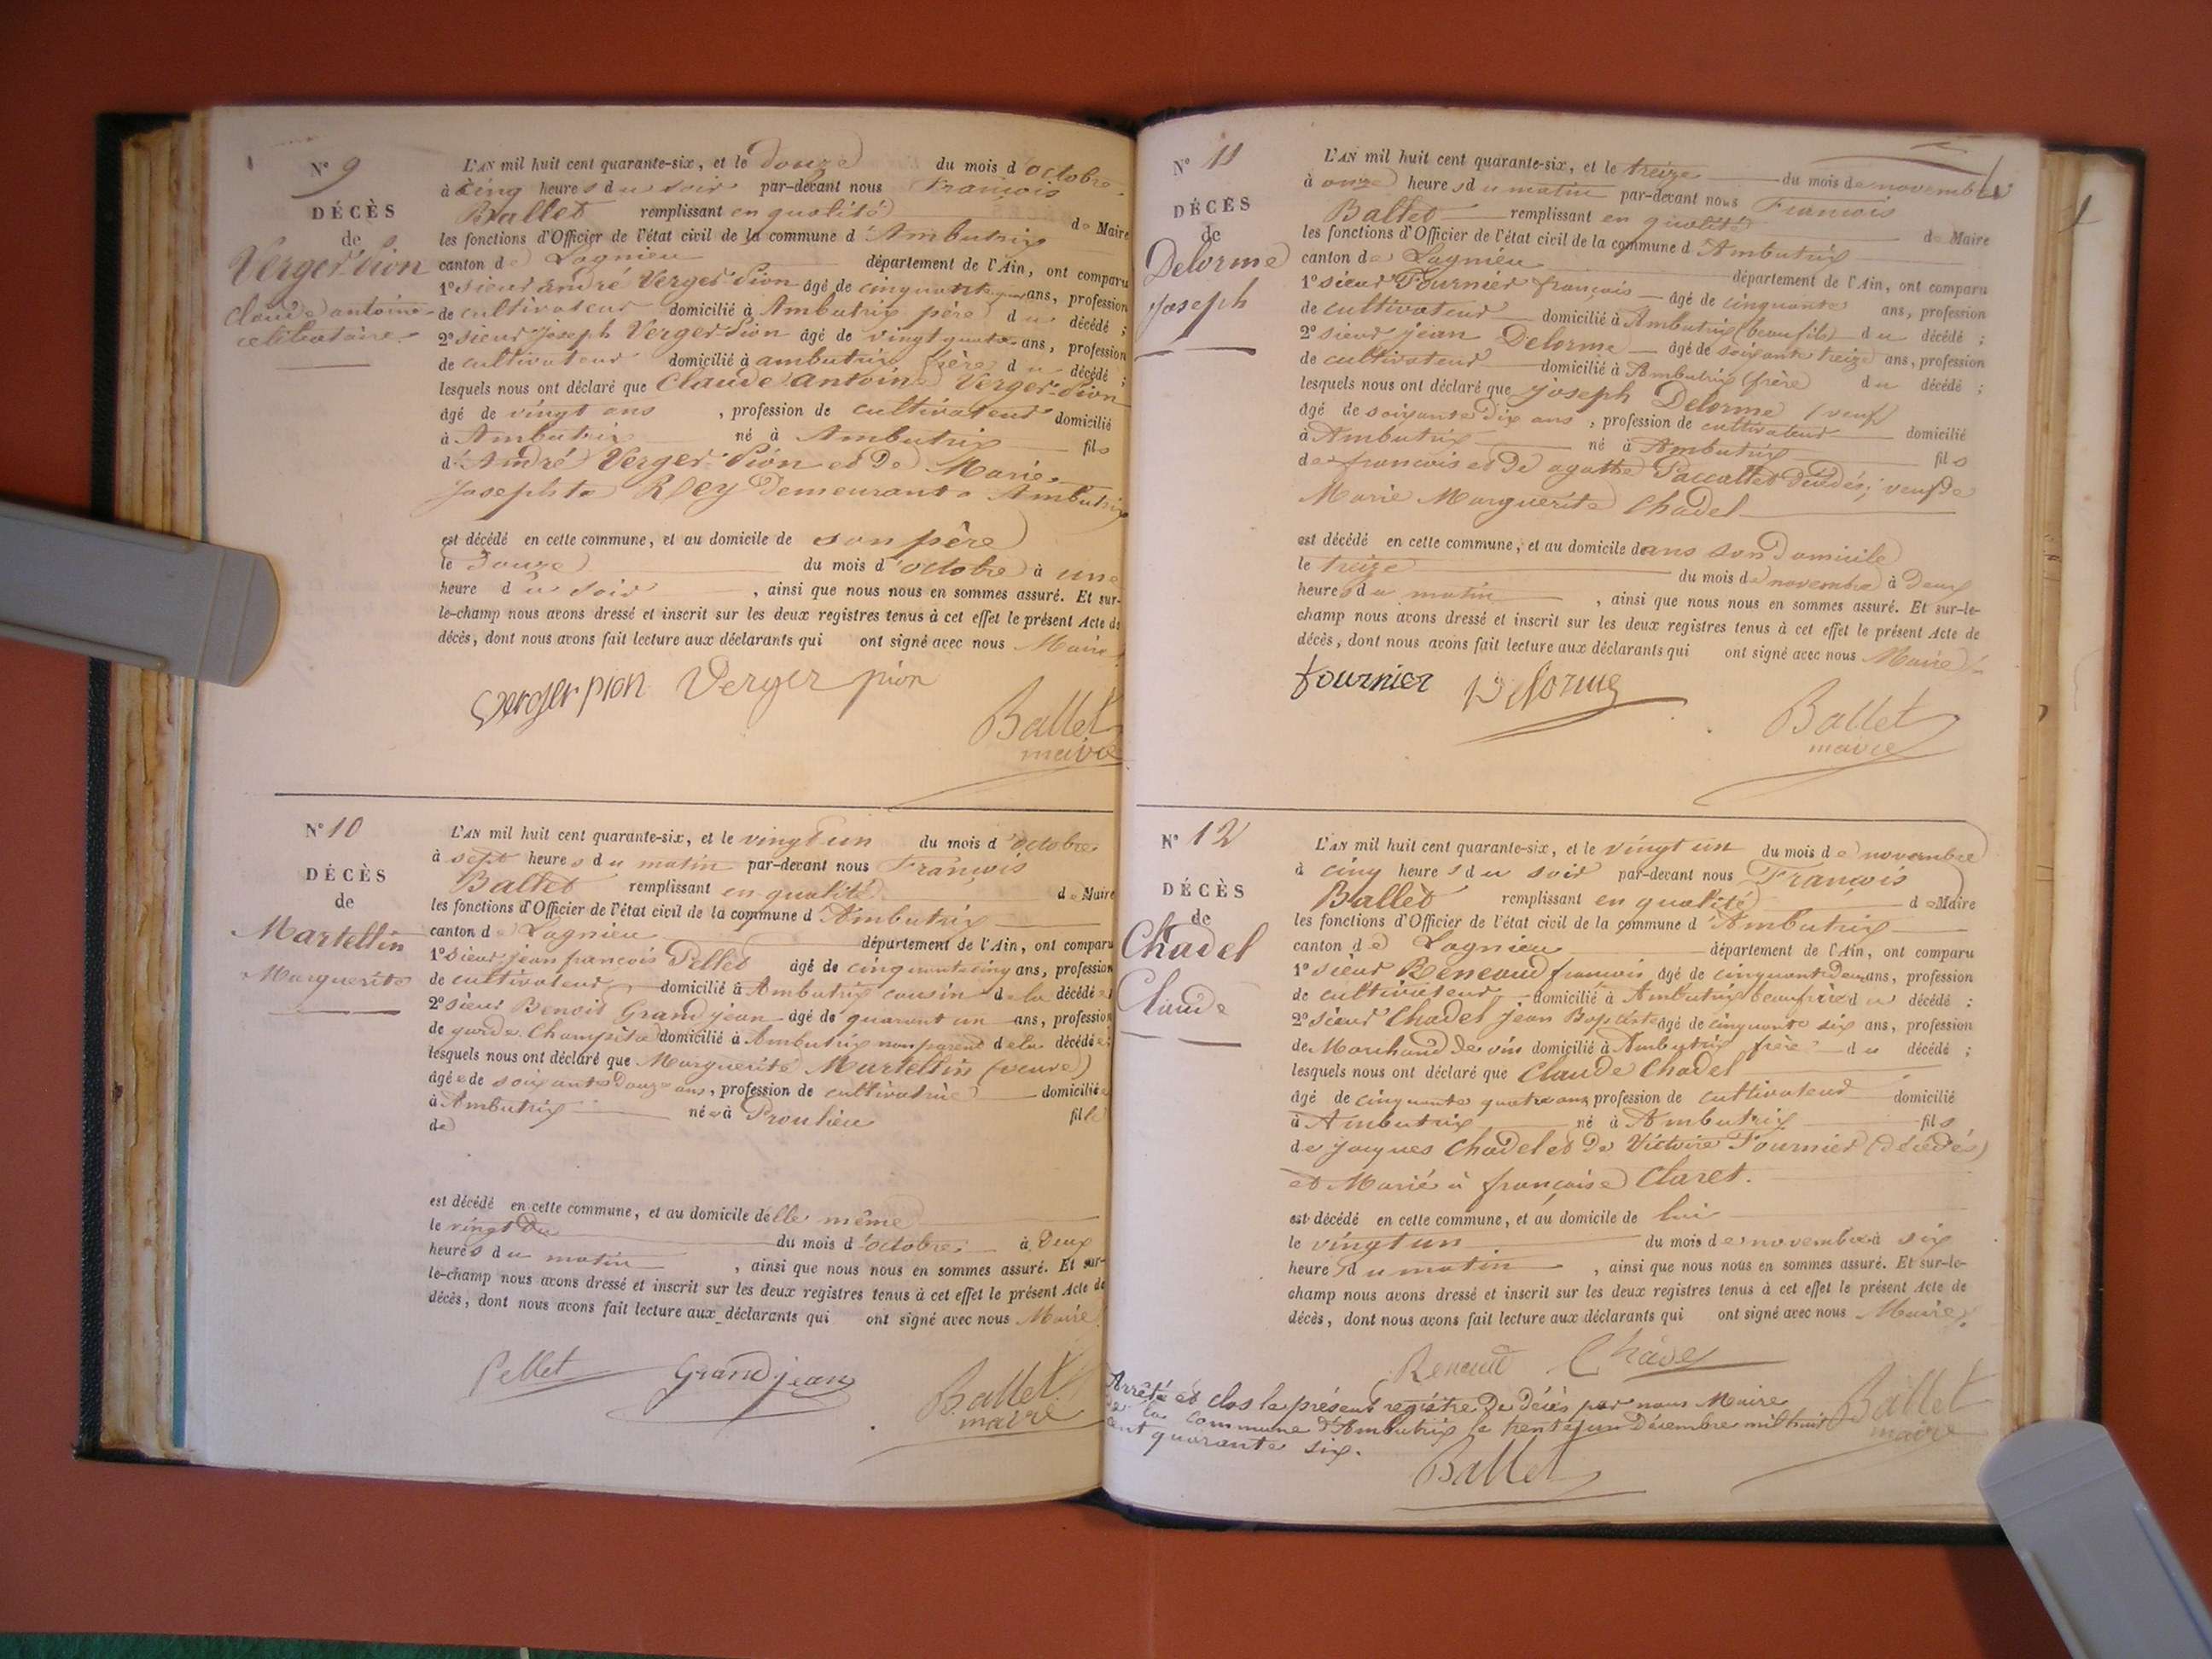 N° 9
DÉCÈS
de
Verger Pion
Claude antoine
celibataire.
L'AN mil huit cent quarante-six, et le douze du mois d'octobre
à cinq heures du soir par-devant nous François
Ballet remplissant en qualité de Maire
les fonctions d'Officier de l'état civil de la commune d'Ambutrix
canton de Lagnieu département de l'Ain, ont comparu
1° sieur andré Verger Pion âgé de cinquante ans, profession
de cultivateur domicilié à Ambutrix père du décédé ;
2° sieur Joseph Verger Pion âgé de vingt quatre ans, profession
de cultivateur domicilié à ambutrix frère du décédé ;
lesquels nous ont déclaré que Claude antoine Verger-Pion
âgé de vingt ans, profession de cultivateur domicilié
à Ambutrix né à Ambutrix fils
d'André Verger Pion et de Marie
Josephte Rey demeurant a Ambutrix
est décédé en cette commune, et au domicile de son père
le douze du mois d'octobre à une
heure du soir, ainsi que nous nous en sommes assuré. Et sur-
le-champ nous avons dressé et inscrit sur les deux registres tenus à cet effet le présent Acte de
décès, dont nous avons fait lecture aux déclarants qui ont signé avec nous Maire
Verger pion Verger pion
Ballet
maire
N° 10
DÉCÈS
de
Martellin
Marguerite
L'AN mil huit cent quarante-six, et le vingt un du mois d'octobre
à sept heures du matin par-devant nous François
Ballet remplissant en qualité de Maire
les fonctions d'Officier de l'état civil de la commune d'Ambutrix
canton de Lagnieu département de l'Ain, ont comparu
1° sieur jean francois Pellet âgé de cinquante cinq ans, profession
de cultivateur domicilié à Ambutrix cousin de la décédée
2° sieur Benoit Grandjean âgé de quarant un ans, profession
de garde Champêtre domicilié à Ambutrix non parent de la décédée ;
lesquels nous ont déclaré que Marguerite Martellin (veuve)
âgée de soixante douze ans, profession de cultivatrice domiciliée
à Ambutrix née à Proulieu fille
de
est décédé en cette commune, et au domicile delle même
le vingt du mois d'octobre à deux
heures du matin, ainsi que nous nous en sommes assuré. Et sur-
le-champ nous avons dressé et inscrit sur les deux registres tenus à cet effet le présent Acte de
décès, dont nous avons fait lecture aux déclarants qui ont signé avec nous Maire
Pellet Grandjean
Ballet
maire
N° 11
DÉCÈS
de
Delorme
Joseph
L'AN mil huit cent quarante-six, et le treize du mois de novembre
à onze heures du matin par-devant nous Francois
Ballet remplissant en qualité de Maire
les fonctions d'Officier de l'état civil de la commune d'Ambutrix
canton de Lagnieu département de l'Ain, ont comparu
1° sieur Fournier françois âgé de cinquante ans, profession
de cultivateur domicilié à Ambutrix (beaufils) du décédé ;
2° sieur jean Delorme âgé de soixante treize ans, profession
de cultivateur domicilié à Ambutrix (frère) du décédé ;
lesquels nous ont déclaré que joseph Delorme (veuf)
âgé de soixante dix ans, profession de cultivateur domicilié
à Ambutrix né à Ambutrix fils
de francois et de agathe Paccallet décédés; veuf de
Marie Marguerite Chadel
est décédé en cette commune, et au domicile dans son domicile
le treize du mois de novembre à deux
heures du matin, ainsi que nous nous en sommes assuré. Et sur-le-
champ nous avons dressé et inscrit sur les deux registres tenus à cet effet le présent Acte de
décès, dont nous avons fait lecture aux déclarants qui ont signé avec nous Maire
fournier Delorme
Ballet
maire
N° 12
DÉCÈS
de
Chadel
Claude
L'AN mil huit cent quarante-six, et le vingt un du mois de novembre
à cinq heures du soir par-devant nous François
Ballet remplissant en qualité de Maire
les fonctions d'Officier de l'état civil de la commune d'Ambutrix
canton de Lagnieu département de l'Ain, ont comparu
1° sieur Reneaud francois âgé de cinquante deux ans, profession
de cultivateur domicilié à Ambutrix beaufrère du décédé ;
2° sieur Chadel jean Baptiste âgé de cinquante six ans, profession
de Marchand de vin domicilié à Ambutrix frère du décédé ;
lesquels nous ont déclaré que Claude Chadel
âgé de cinquante quatre ans profession de cultivateur domicilié
à Ambutrix né à Ambutrix fils
de jacques Chadel et de Victoire Fournier (décédés)
et Marié à françoise Claret.
est décédé en cette commune, et au domicile de lui
le vingt un du mois de novembre à six
heures du matin, ainsi que nous nous en sommes assuré. Et sur-le-
champ nous avons dressé et inscrit sur les deux registres tenus à cet effet le présent Acte de
décès, dont nous avons fait lecture aux déclarants qui ont signé avec nous Maire.
Renaud Chadel
Ballet
maire
Arrêté et clos le présent registre de décès par nous Maire
de la commune d'Ambutrix le trente un Décembre mil huit
cent quarante six.
Ballet